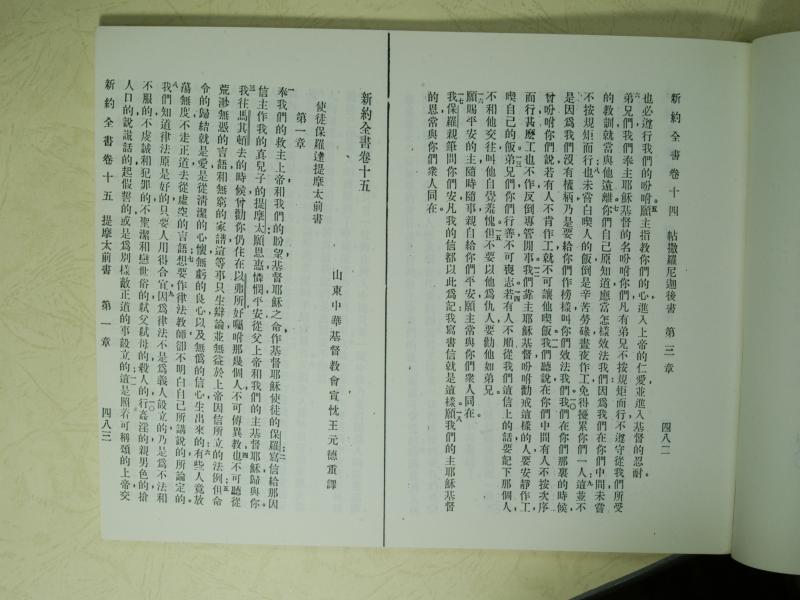 新約全書卷十四　帖撒羅尼迦後書　第三章　四八二
也必遵行我們的吩咐願主指教你們的心進入上帝的仁愛並進入基督的忍耐。
六弟兄們我們奉主耶穌基督的名吩咐你們凡有弟兄不按規矩而行不遵守從我們所受
的教訓就當與他遠離你們自己原知道應當怎樣效法我們因爲我們在你們中間未嘗
不按規矩而行也未嘗白喫人的飯倒是辛苦勞碌晝夜作工免得擾累你們一人這並不
是因爲我們沒有權柄乃是要給你們作榜樣叫你們效法我們我們在你們那裏的時候
曾吩咐你們說若有人不肯作工就不可讓他喫飯我們聽說在你們中間有人不按次序
而行甚麽工也不作反倒專管閒事我們靠主耶穌基督吩咐勸戒這樣的人要安靜作工
喫自己的飯弟兄們你們行善不可喪志若有人不順從我們這信上的話要記下那個人
不和他交往叫他自覺羞愧但不要以他爲仇人要勸他如弟兄。
願賜平安的主隨時隨事親自給你們平安願主常與你們衆人同在。
我保羅親筆問你們安凡我的信都以此爲記我寫書信就是這樣願我們的主耶穌基督
的恩常與你們衆人同在。
新約全書卷十五
山東中華基督教會宣忱王元德重譯
使徒保羅達提摩太前書
第一章
奉我們的救主上帝和我們的盼望基督耶穌之命作基督耶穌使徒的保羅寫信給那因
信主作我的眞兒子的提摩太願恩惠憐憫平安從父上帝和我們的主基督耶穌歸與你。
我往馬其頓去的時候曾勸你仍住在以弗所好囑咐那幾個人不可傳異教也不可聽從
荒渺無憑的言語和無窮的家譜這等事只生辯論並無益於上帝因信所立的法例但命
令的歸結就是愛是從清潔的心懷無虧的良心以及無僞的信心生出來的有些人竟放
蕩無度不走正道去從虛空的言語想要作律法教師卻不明白自己所講說的所論定的
我們知道律法原是好的只要人用得合宜因爲律法不是爲義人設立的乃是爲不法和
不服的不虔誠和犯罪的不聖潔和戀世俗的弑父弑母的殺人的行姦淫的親男色的搶
人口的說謊話的起假誓的或是爲別樣敵正道的事設立的這是照着可稱頌的上帝交
新約全書卷十五　提摩太前書　第一章　四八三